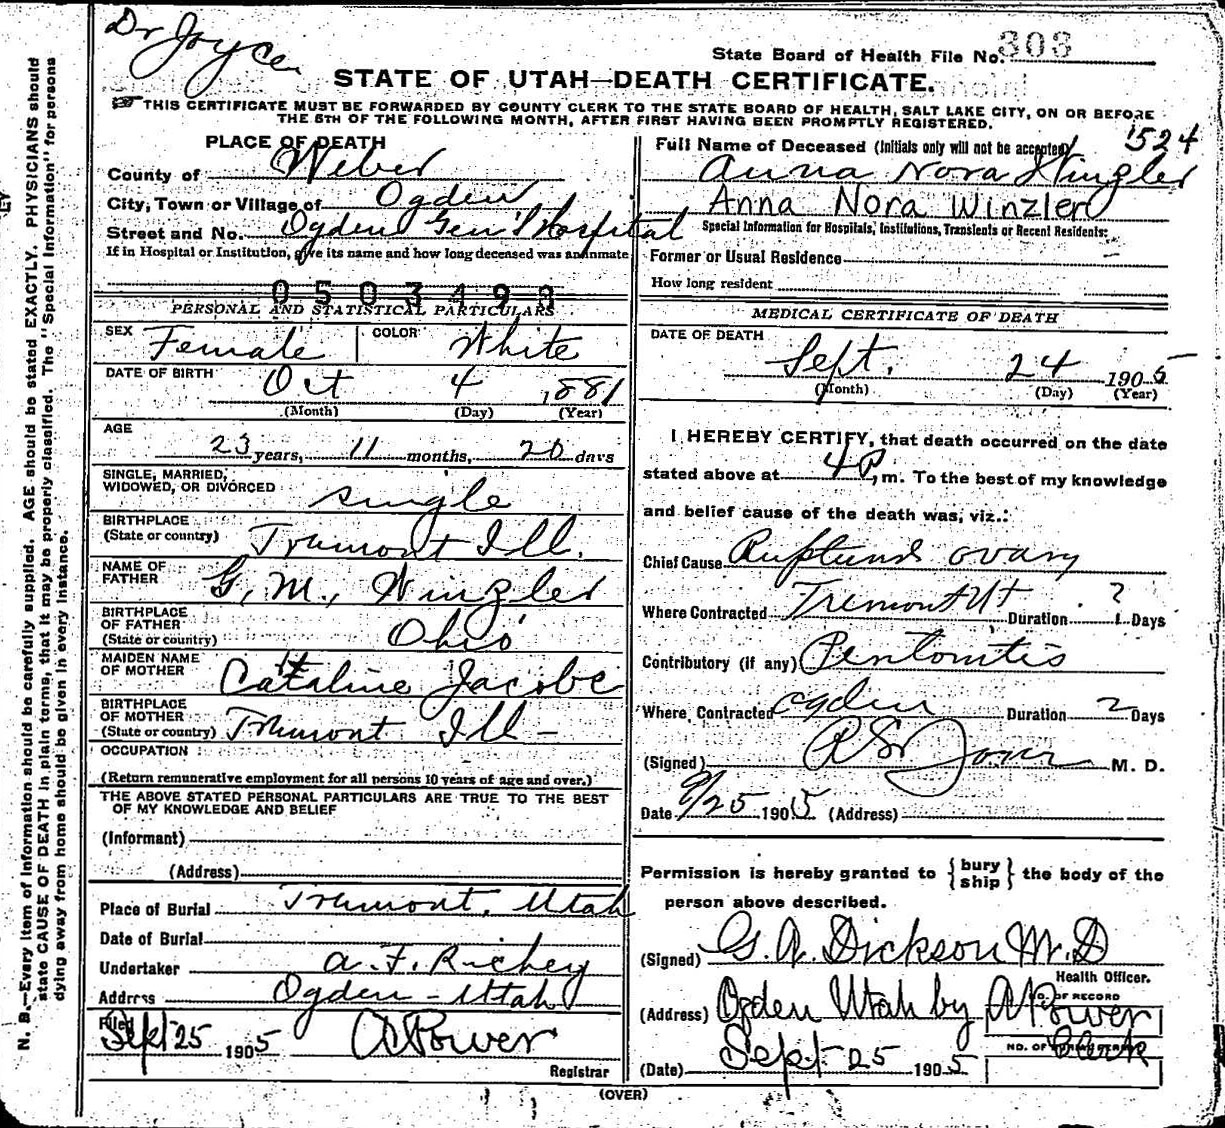 Dr Joyce
State Board of Health File No. 303
STATE OF UTAH—DEATH CERTIFICATE.
THIS CERTIFICATE MUST BE FORWARDED BY COUNTY CLERK TO THE STATE BOARD OF HEALTH, SALT LAKE CITY, ON OR BEFORE
THE 5TH OF THE FOLLOWING MONTH, AFTER FIRST HAVING BEEN PROMPTLY REGISTERED.
PLACE OF DEATH
County of Weber
City, Town or Village of Ogden
Street and No. Ogden Gen'l Hospital
If in Hospital or Institution, give its name and how long deceased was an inmate
0503499
PERSONAL AND STATISTICAL PARTICULARS
SEX Female COLOR White
DATE OF BIRTH Oct 4 1881
(Month) (Day) (Year)
AGE
23 years, 11 months, 20 days
SINGLE, MARRIED,
WIDOWED, OR DIVORCED single
BIRTHPLACE
(State or country) Tremont Ill.
NAME OF
FATHER G. M. Winzler
BIRTHPLACE
OF FATHER
(State or country) Ohio
MAIDEN NAME
OF MOTHER Jacobe
BIRTHPLACE
OF MOTHER
(State or country) Tremont Ill -
OCCUPATION
(Return remunerative employment for all persons 10 years of age and over.)
THE ABOVE STATED PERSONAL PARTICULARS ARE TRUE TO THE BEST
OF MY KNOWLEDGE AND BELIEF
(Informant)
(Address)
Place of Burial Tremont, Utah
Date of Burial
Undertaker A. F. Richey
Address Ogden - Utah
Filed Sept 25 1905 Power
Registrar
1524
Full Name of Deceased (Initials only will not be accepted)
Anna Nora Winzler
Anna Nora Winzler
Special Information for Hospitals, Institutions, Transients or Recent Residents:
Former or Usual Residence
How long resident
MEDICAL CERTIFICATE OF DEATH
DATE OF DEATH
Sept. 24 1905
(Month) (Day) (Year)
I HEREBY CERTIFY, that death occurred on the date
stated above at 4 P. m. To the best of my knowledge
and belief cause of the death was, viz.:
Chief Cause Ruptured ovary
Where Contracted Tremont Ut Duration ? Days
Contributory (if any) Peritonitis
Where Contracted Ogden Duration 2 Days
(Signed) M. D.
Date 9/25 1905 (Address)
Permission is hereby granted to { bury ship } the body of the
person above described.
(Signed) G. A. Dickson M.D
Health Officer.
(Address) Ogden Utah by Power
NO. OF RECORD
Clerk
(Date) Sept 25 1905
(OVER)
N. B.—Every item of information should be carefully supplied. AGE should be stated EXACTLY. PHYSICIANS should
state CAUSE OF DEATH in plain terms, that it may be properly classified. The "Special Information" for persons
dying away from home should be given in every instance.